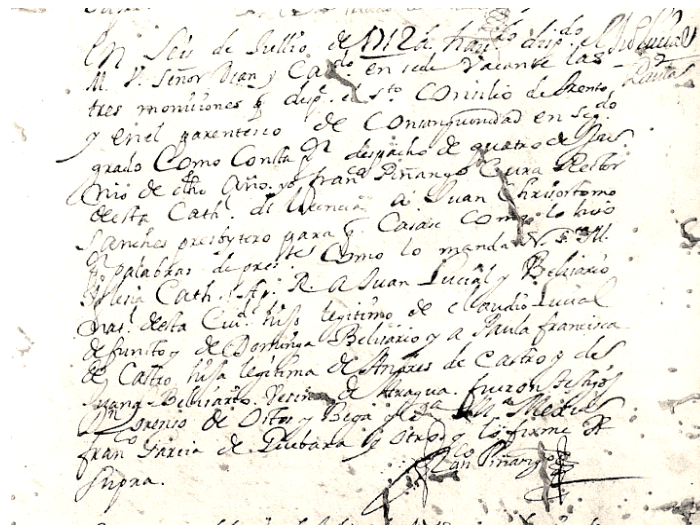 En seis de Jullio de 1712 a. haviendo disp.do el
M. V. Señor Dean y Ca.do en sede vacante las
tres moniciones q disp.e el S.to Consilio de Trento
y en el parentesco de Consanguinidad en seg.do
grado Como Consta p.r despacho de quatro de Ju
nio de dho Año. yo Fran.co Piñango Cura Rector
desta Cath.l di licencia a Juan Chrisostomo
Sanches presbytero para q Casase como lo hiso
p.r palabras de pres.tes Como lo manda N. S. M.
Iglesia Cath. Ap. R. a Juan Lucial y Belisario
nat.l desta Ciu.d hijo legitimo de Claudio Lucial
defunto y de Dominga Belisario y a Paula francisca
de Castro hija legitima de Andres de Castro y de
Juana Belisario. Vecina de Aragua. fueron testigos
Lorenso de Ostos y Vega
fran.co Garcia de Guebara y otros y lo firme ut
supra.
Fran.co Piñango